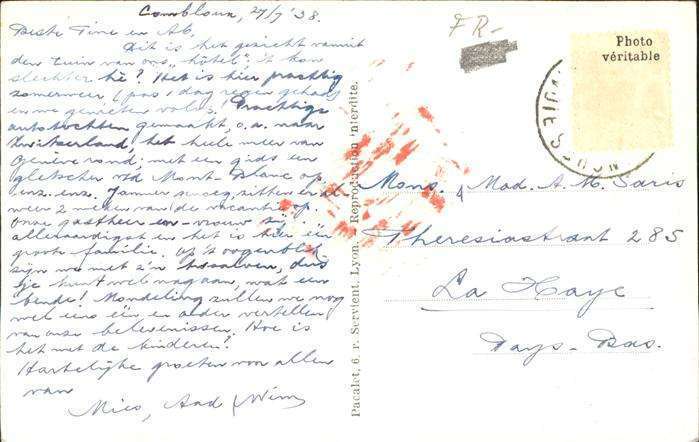 Combloux, 27/7 '38.
Beste Tine en Ab,
Dit is het gezicht vanuit
den tuin van ons "hôtel"; 't kon
slechter hè? Het is hier prachtig
zomerweer (pas 1 dag regen gehad)
en we genieten volop! Prachtige
autotochten gemaakt, o.a. naar
Zwitserland, het heele meer van
Genève rond; met een gids een
gletscher v/d Mont-Blanc op,
enz. enz. Jammer genoeg, zitten er al
weer 2 weken van de vacantie op.
Onze gastheer en -vrouw zijn
alleraardigst en het is hier één
groote familie. Op 't oogenblik
zijn we met z'n twaalven, dus
je kunt wel nagaan, wat een
bende! Mondeling zullen we nog
wel eens één en ander vertellen
van onze belevenissen. Hoe is
het met de kinderen?
Hartelijke groeten voor allen
van
Mies, Aad & Wim
Pacalet, 6, r. Servient, Lyon. - Reproduction interdite.
FR-
Photo
véritable
Mons. & Mad. A. M. Saris
Theresiastraat 285
La Haye
Pays-Bas.